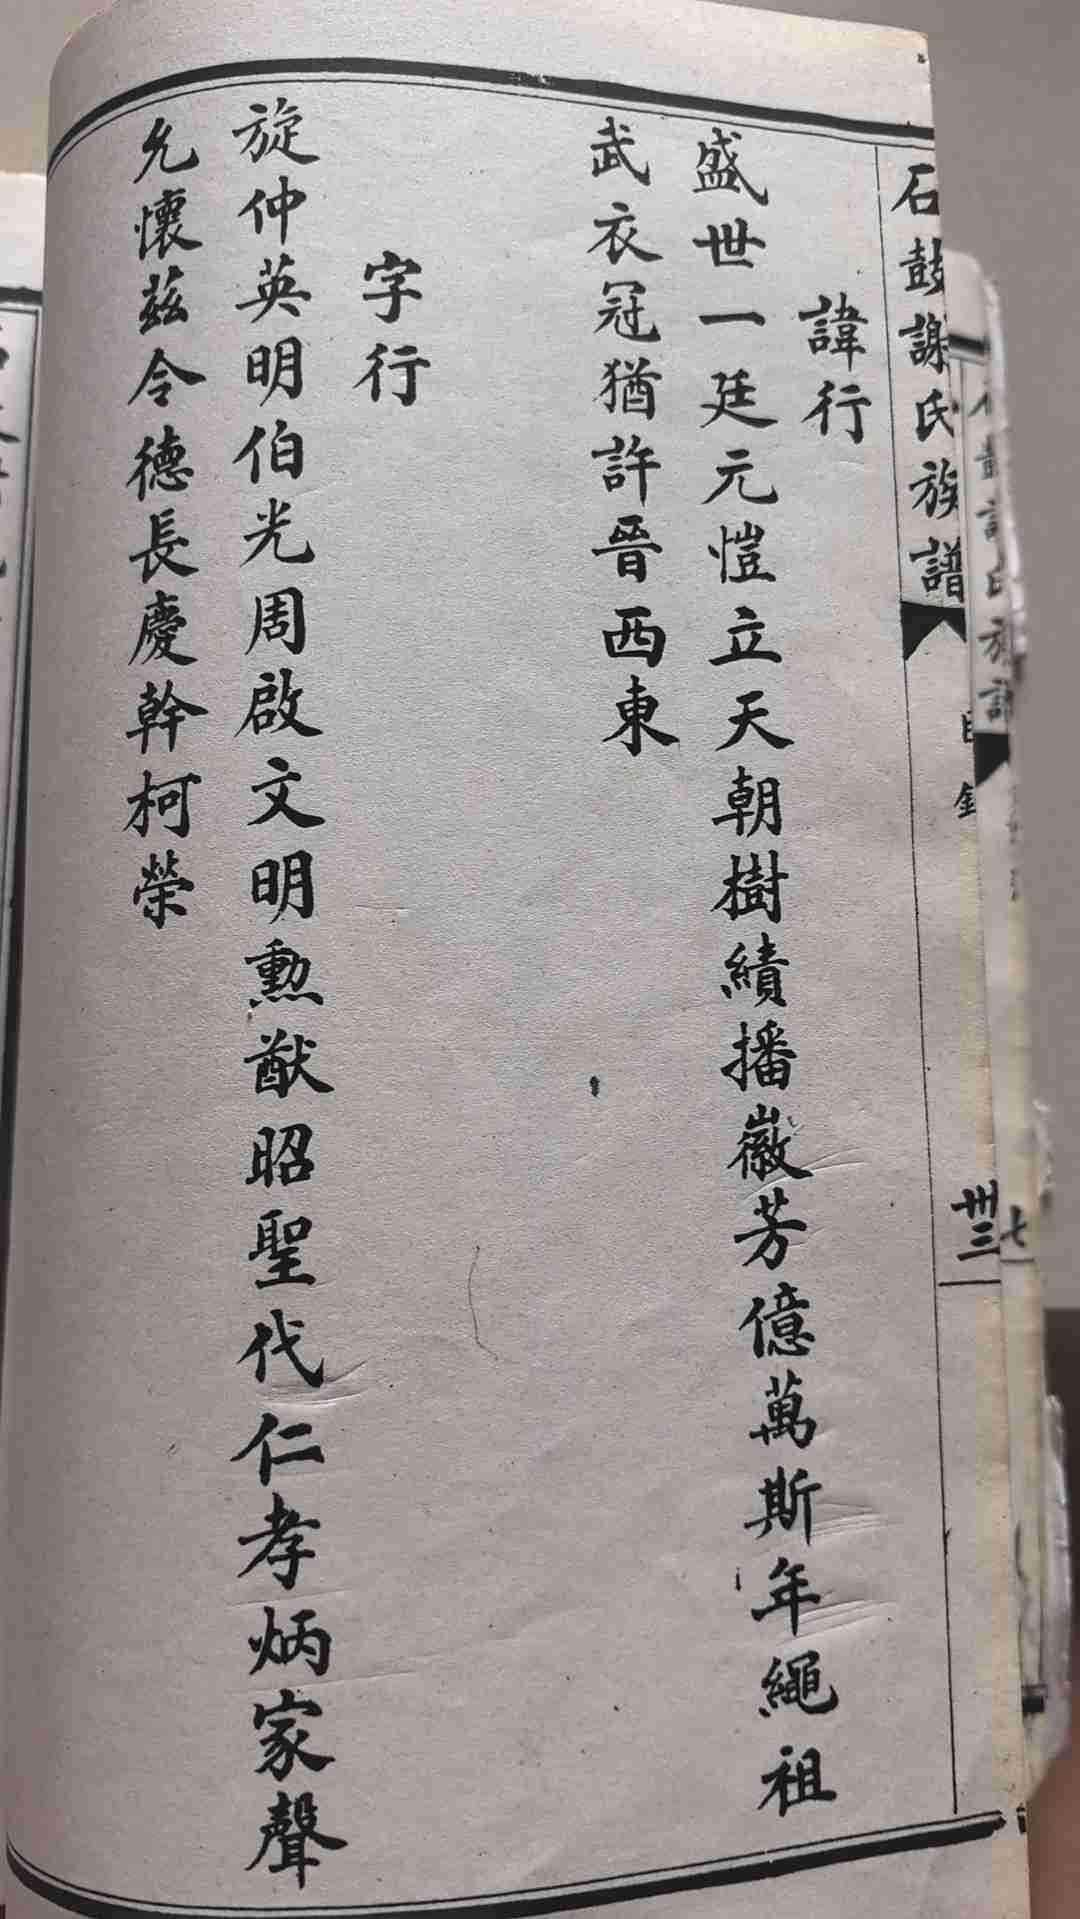 石鼓謝氏族譜
目錄
卅三
諱行
盛世一廷元愷立天朝樹績播徽芳億萬斯年繩祖
武衣冠猶許晉西東
字行
旋仲英明伯光周啟文明勲猷昭聖代仁孝炳家聲
允懷茲令德長慶幹柯榮